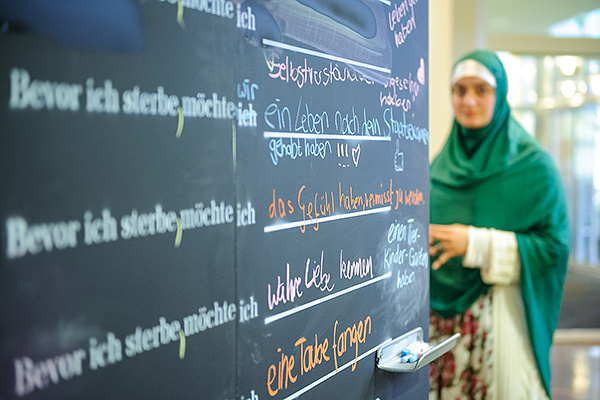 Bevor ich sterbe, möchte ich
leben
haben
Selbstverständ
Bevor ich sterbe, möchte ich
wir
ein Leben nach dem Staatsexamen
gehabt haben !!! ♡
Bevor ich sterbe, möchte ich
das Gefühl haben, vermisst zu werden
einen Tier-
Kinder-Garten
haben
wahre Liebe kennen
Bevor ich sterbe, möchte ich
eine Taube fangen